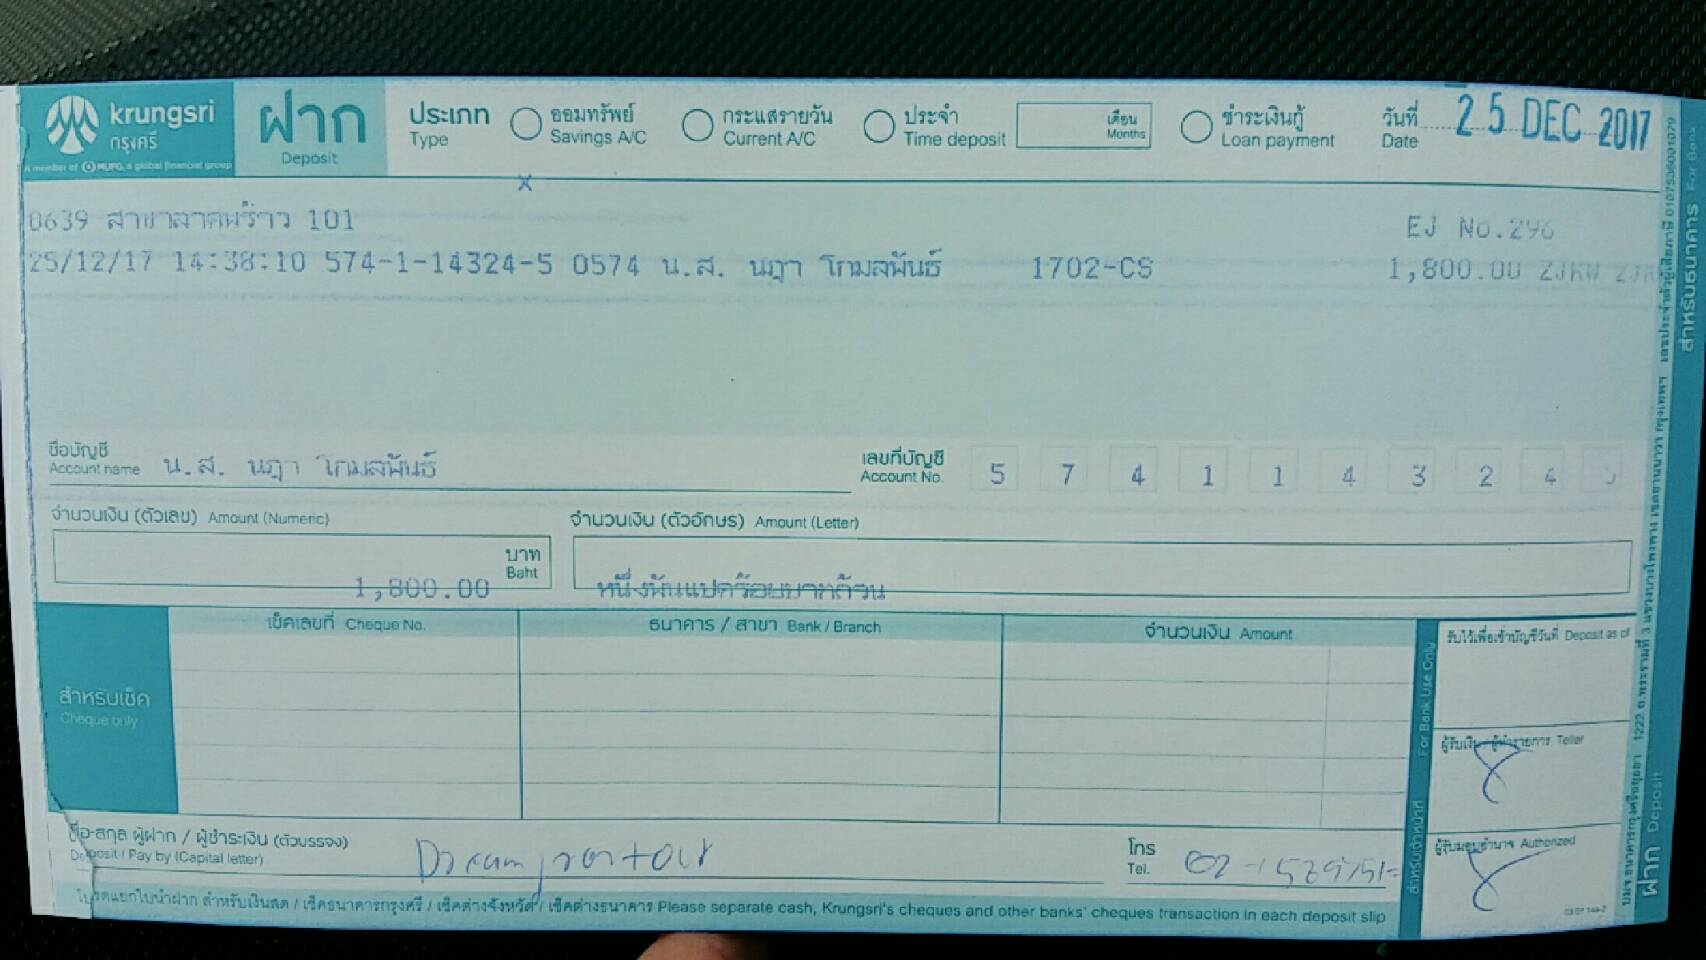 krungsri
กรุงศรี
A member of MUFG, a global financial group
ฝาก
Deposit
ประเภท
Type
ออมทรัพย์
Savings A/C
กระแสรายวัน
Current A/C
ประจำ
Time deposit
เดือน
Months
ชำระเงินกู้
Loan payment
วันที่
Date
25 DEC 2017
x
0639 สาขาลาดพร้าว 101
EJ No.296
25/12/17 14:38:10 574-1-14324-5 0574 น.ส. นฎา โกมลพันธ์ 1702-CS 1,800.00 ZJKW
ชื่อบัญชี
Account name น.ส. นฎา โกมลพันธ์
เลขที่บัญชี
Account No. 5 7 4 1 1 4 3 2 4
จำนวนเงิน (ตัวเลข) Amount (Numeric)
จำนวนเงิน (ตัวอักษร) Amount (Letter)
บาท
Baht
1,800.00
หนึ่งพันแปดร้อยบาทถ้วน
สำหรับเช็ค
Cheque only
เช็คเลขที่ Cheque No.
ธนาคาร / สาขา Bank / Branch
จำนวนเงิน Amount
สำหรับเจ้าหน้าที่ For Bank Use Only
รับไว้เพื่อเข้าบัญชีวันที่ Deposit as of
ผู้รับเงิน / ผู้ทำรายการ Teller
ผู้รับมอบอำนาจ Authorized
ชื่อ-สกุล ผู้ฝาก / ผู้ชำระเงิน (ตัวบรรจง)
Deposit / Pay by (Capital letter)
โทร
Tel.
โปรดแยกใบนำฝาก สำหรับเงินสด / เช็คธนาคารกรุงศรี / เช็คต่างจังหวัด / เช็คต่างธนาคาร Please separate cash, Krungsri's cheques and other banks' cheques transaction in each deposit slip
สำหรับธนาคาร For Bank
ฝาก Deposit